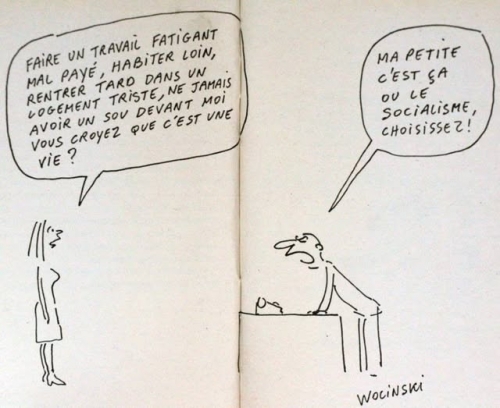 FAIRE UN TRAVAIL FATIGANT
MAL PAYÉ, HABITER LOIN,
RENTRER TARD DANS UN
LOGEMENT TRISTE, NE JAMAIS
AVOIR UN SOU DEVANT MOI
VOUS CROYEZ QUE C'EST UNE
VIE ?
MA PETITE
C'EST ÇA
OU LE
SOCIALISME,
CHOISISSEZ !
WOLINSKI